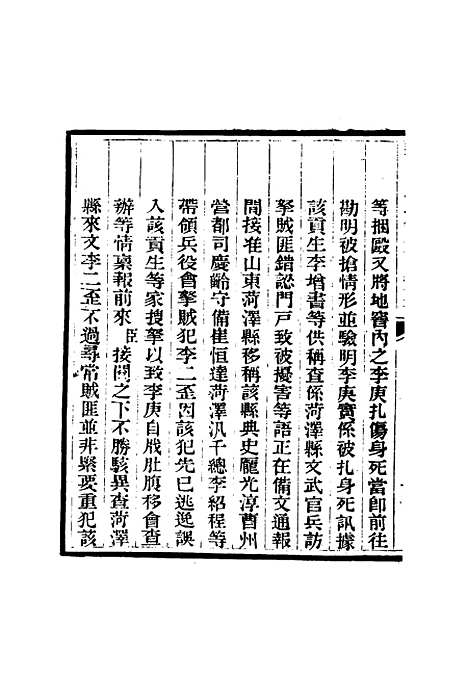 等捆毆又將地窖內之李庚扎傷身死當卽前往
勘明被搶情形並驗明李庚實係被扎身死訊據
該貢生李增書等供稱查係菏澤縣文武官兵訪
拏賊匪錯認門戸致被擬害等語正在備文通報
間接准山東菏澤縣移稱該縣典史龎光淳曹州
營都司慶齡守備崔恒達菏澤汛千總李紹程等
帶領兵役會拏賊犯李二歪因該犯先已逃逸誤
入該貢生等家搜拏以致李庚自戕肚腹移會查
辦等情稟報前來臣接閱之下不勝駭異查菏澤
縣來文李二歪不過尋常賊匪並非緊要重犯該